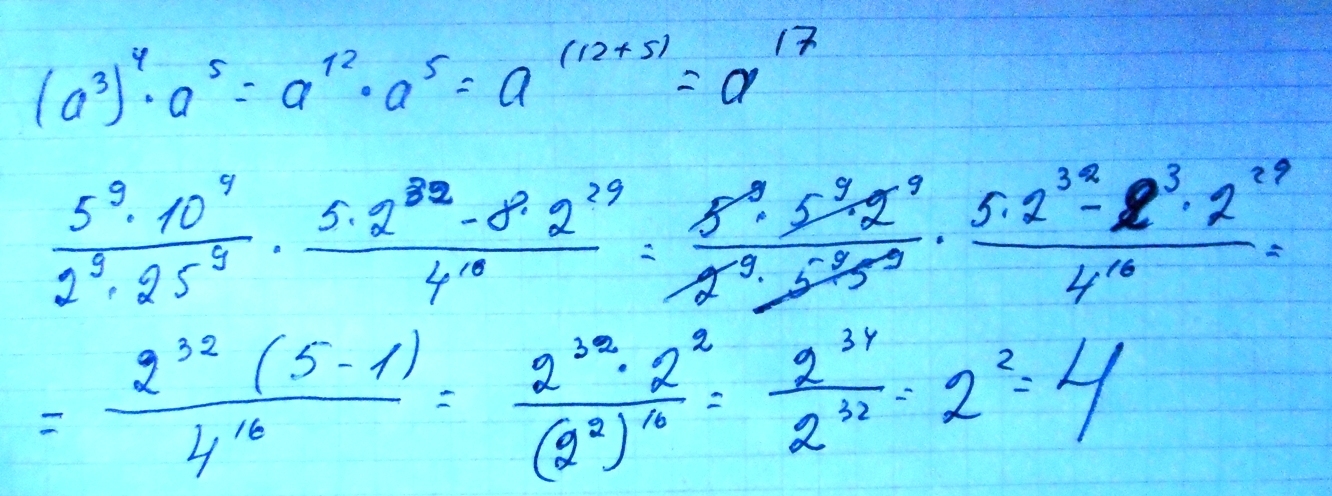 (a³)⁴ · a⁵ = a¹² · a⁵ = a⁽¹²⁺⁵⁾ = a¹⁷
\frac{5^9 · 10^9}{2^9 · 25^9} · \frac{5 · 2^{32} - 8 · 2^{29}}{4^{16}} = \frac{5^9 · 5^9 · 2^9}{2^9 · 5^9 · 5^9} · \frac{5 · 2^{32} - 2^3 · 2^{29}}{4^{16}} =
= \frac{2^{32} (5 - 1)}{4^{16}} = \frac{2^{32} · 2^2}{(2^2)^{16}} = \frac{2^{34}}{2^{32}} = 2^2 = 4